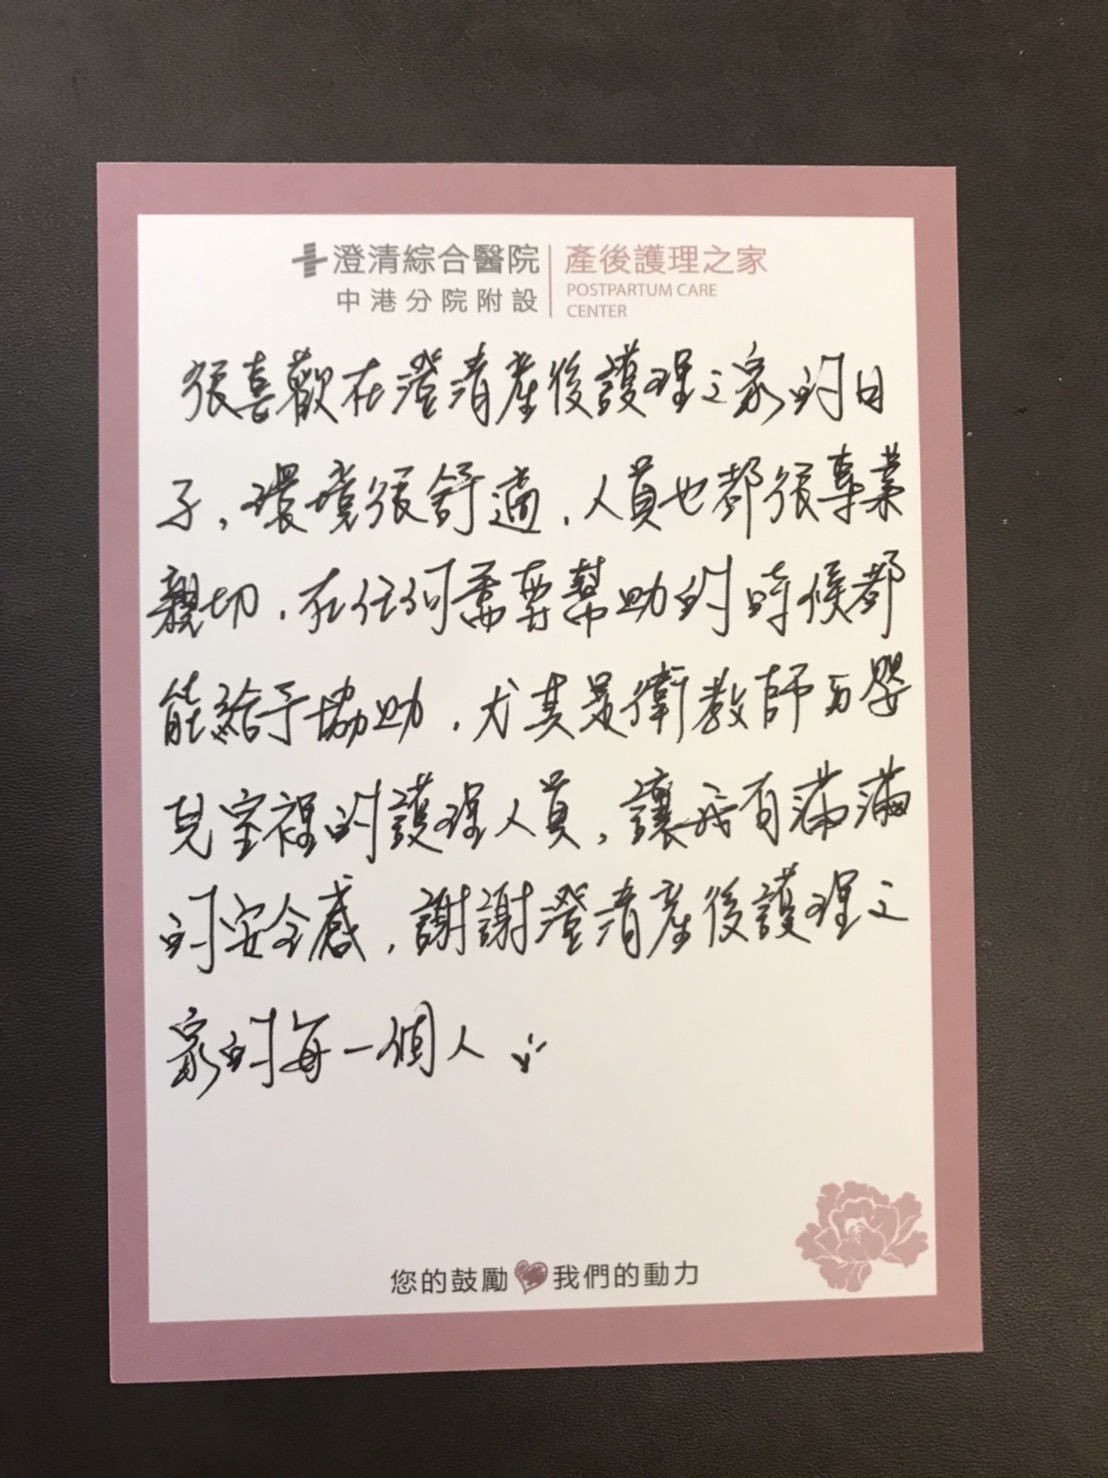 澄清綜合醫院
中港分院附設
產後護理之家
POSTPARTUM CARE
CENTER
很喜歡在澄清產後護理之家的日
子,環境很舒適,人員也都很專業
親切,在任何需要幫助的時候都
能給予協助,尤其是衛教師與嬰
兒室裡的護理人員,讓我有滿滿
的安全感,謝謝澄清產後護理之
家的每一個人
您的鼓勵 我們的動力